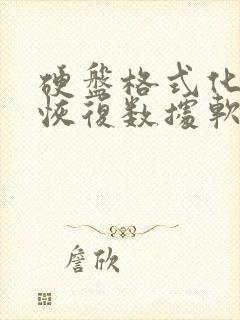 硬盘格式化
恢復数據軟
詹欣